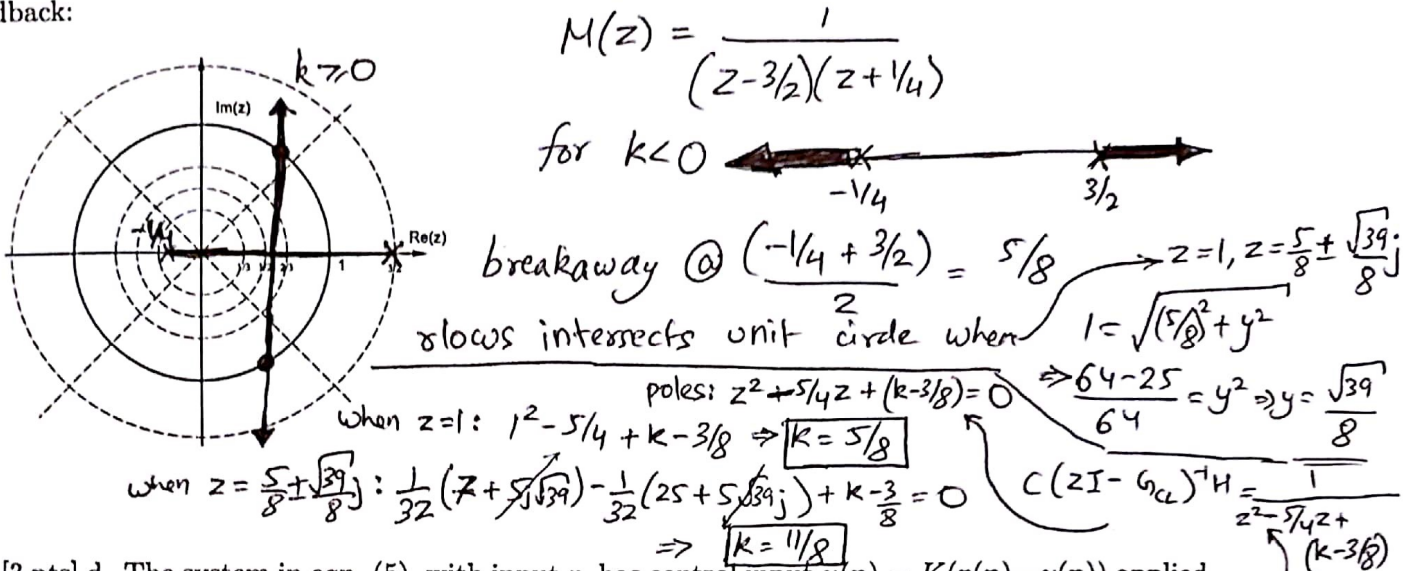 dback:
M(z) = 1 / ((z-3/2)(z+1/4))
k≥0
Im(z)
Re(z)
-1/4
1/3 1/2 2/3 1 3/2
for k<0
-1/4 3/2
breakaway @ (-1/4 + 3/2)/2 = 5/8
→ z=1, z=5/8 ± √39/8 j
rlocus intersects unit circle when
1 = √((5/8)² + y²)
⇒ (64-25)/64 = y² ⇒ y = √39/8
poles: z² - 5/4z + (k-3/8) = 0
when z=1: 1² - 5/4 + k - 3/8 ⇒ k = 5/8
when z = 5/8 ± √39/8 j : 1/32 (-7 + 5j√39) - 1/32 (25 + 5√39j) + k - 3/8 = 0
⇒ k = 11/8
C(zI - G_CL)⁻¹H = 1 / (z² - 5/4z + (k-3/8))
[2 pts] d. The system in eqn. (5), with input u, has control input u(n) = K(r(n) - y(n)) applied